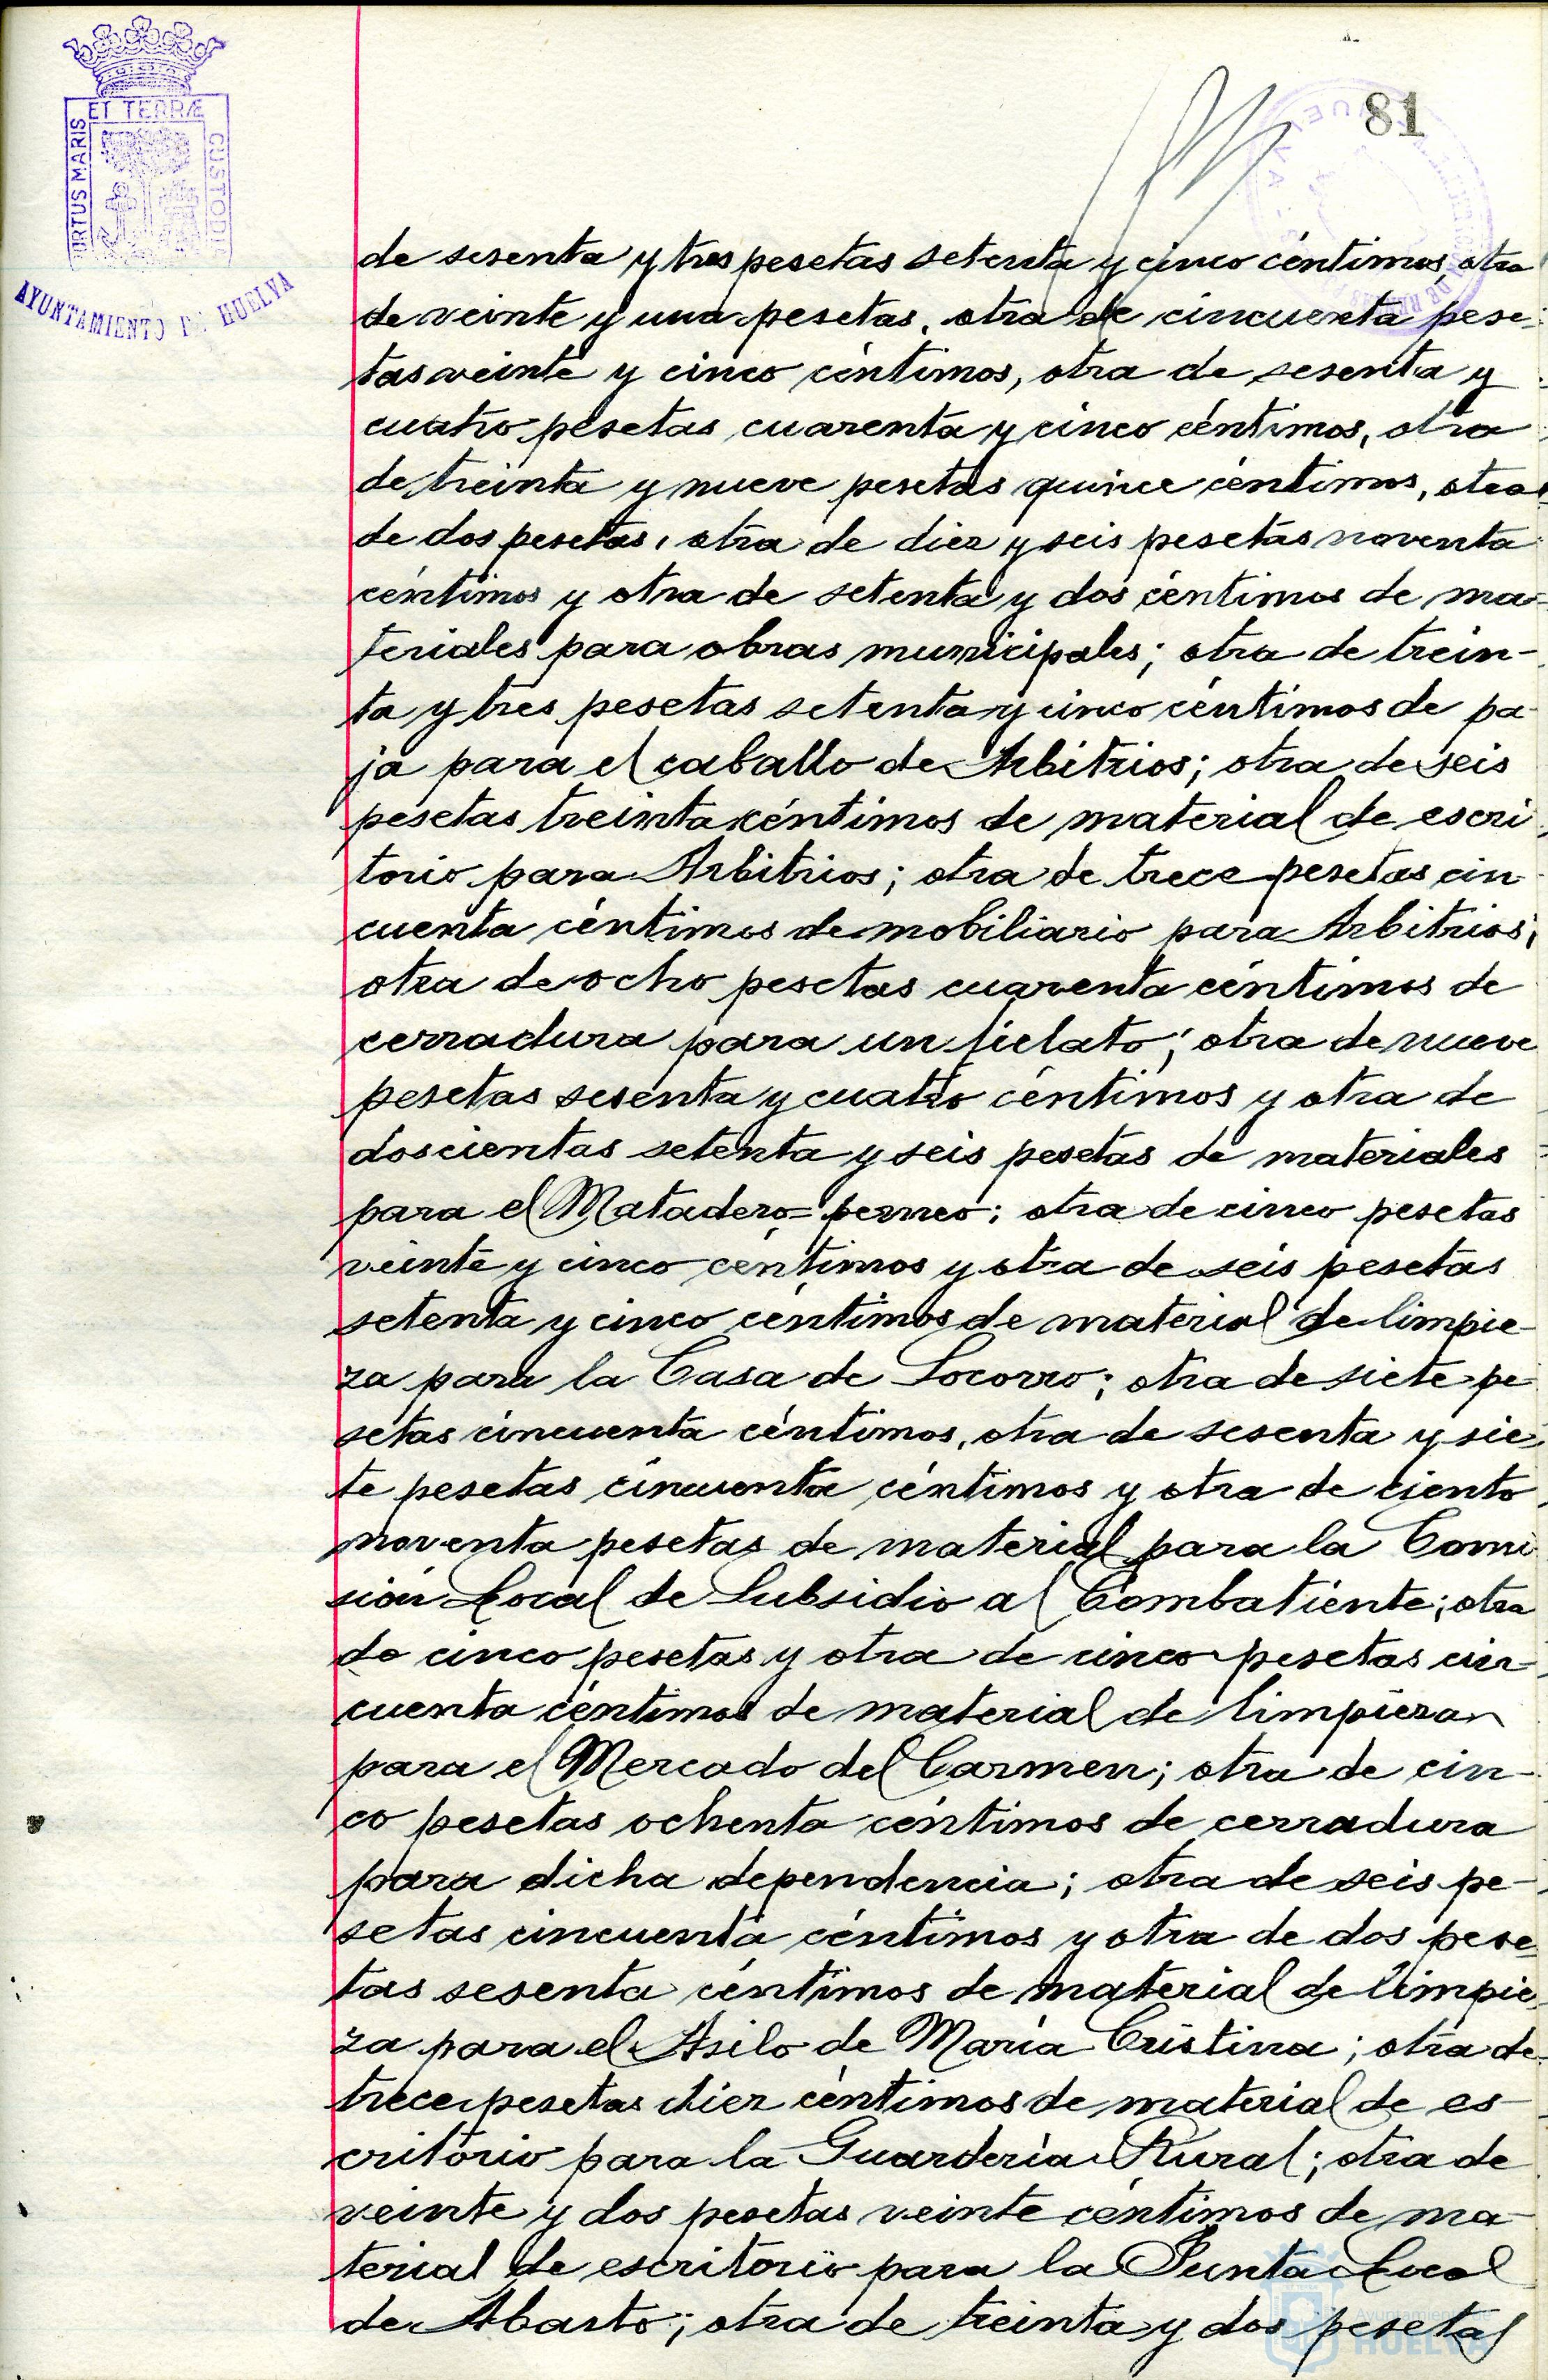 81
PORTUS MARIS
ET TERRÆ
CUSTODIA
AYUNTAMIENTO DE HUELVA
de sesenta y tres pesetas setenta y cinco céntimos, otra
de veinte y una pesetas, otra de cincuenta pese-
tas veinte y cinco céntimos, otra de sesenta y
cuatro pesetas cuarenta y cinco céntimos, otra
de treinta y nueve pesetas quince céntimos, otras
de dos pesetas, otra de diez y seis pesetas noventa
céntimos y otra de setenta y dos céntimos de ma-
teriales para obras municipales; otra de trein-
ta y tres pesetas setenta y cinco céntimos de pa-
ja para el caballo de Arbitrios; otra de seis
pesetas treinta céntimos de material de escri-
torio para Arbitrios; otra de trece pesetas cin-
cuenta céntimos de mobiliario para Arbitrios;
otra de ocho pesetas cuarenta céntimos de
cerradura para un fielato; otra de nueve
pesetas sesenta y cuatro céntimos y otra de
doscientas setenta y seis pesetas de materiales
para el Matadero=perneo; otra de cinco pesetas
veinte y cinco céntimos y otra de seis pesetas
setenta y cinco céntimos de material de limpie-
za para la Casa de Socorro; otra de siete pe-
setas cincuenta céntimos, otra de sesenta y sie-
te pesetas cincuenta céntimos y otra de ciento
noventa pesetas de material para la Comi-
sión Local de Subsidio al Combatiente; otra
de cinco pesetas y otra de cinco pesetas cin-
cuenta céntimos de material de limpieza
para el Mercado del Carmen; otra de cin-
co pesetas ochenta céntimos de cerradura
para dicha dependencia; otra de seis pe-
setas cincuenta céntimos y otra de dos pese-
tas sesenta céntimos de material de limpie-
za para el Asilo de María Cristina; otra de
trece pesetas diez céntimos de material de es-
critorio para la Guardería Rural; otra de
veinte y dos pesetas veinte céntimos de ma-
terial de escritorio para la Junta Local
de Abasto; otra de treinta y dos pesetas
Ayuntamiento de
HUELVA